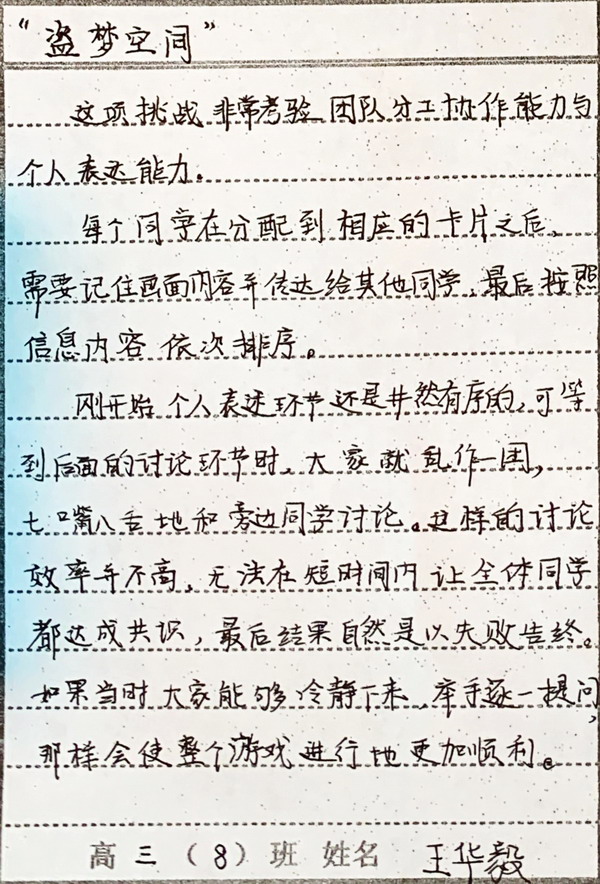 “盗梦空间”
这项挑战非常考验团队分工协作能力与
个人表达能力。
每个同学在分配到相应的卡片之后,
需要记住画面内容并传达给其他同学,最后按照
信息内容依次排序。
刚开始个人表述环节还是井然有序的,可等
到后面的讨论环节时,大家就乱作一团,
七嘴八舌地和旁边同学讨论。这样的讨论
效率并不高,无法在短时间内让全体同学
都达成共识,最后结果自然是以失败告终。
如果当时大家能够冷静下来,举手逐一提问,
那样会使整个游戏进行地更加顺利。
高三(8)班 姓名 王华毅